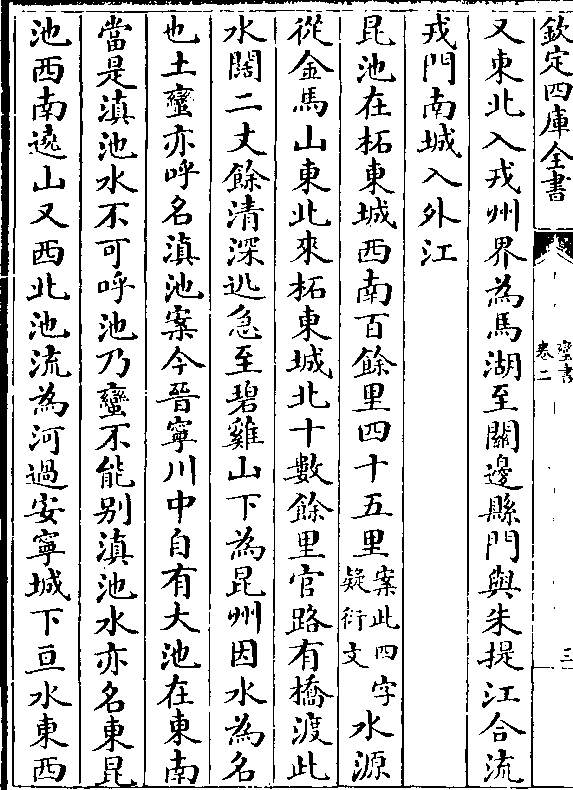 欽定四庫全書
蠻書
卷二
三
又東北入戎州界為馬湖至關邊縣門與朱提江合流
戎門南城入外江
昆池在柘東城西南百餘里四十五里案此四字疑衍文水源
從金馬山東北來柘東城北十數餘里官路有橋渡此
水闊二丈餘清深迅急至碧雞山下為昆州因水為名
也土蠻亦呼名滇池案今晉寧川中自有大池在東南
當是滇池水不可呼池乃蠻不能别滇池水亦名東昆
池西南遶山又西北池流為河過安寧城下亘水東西